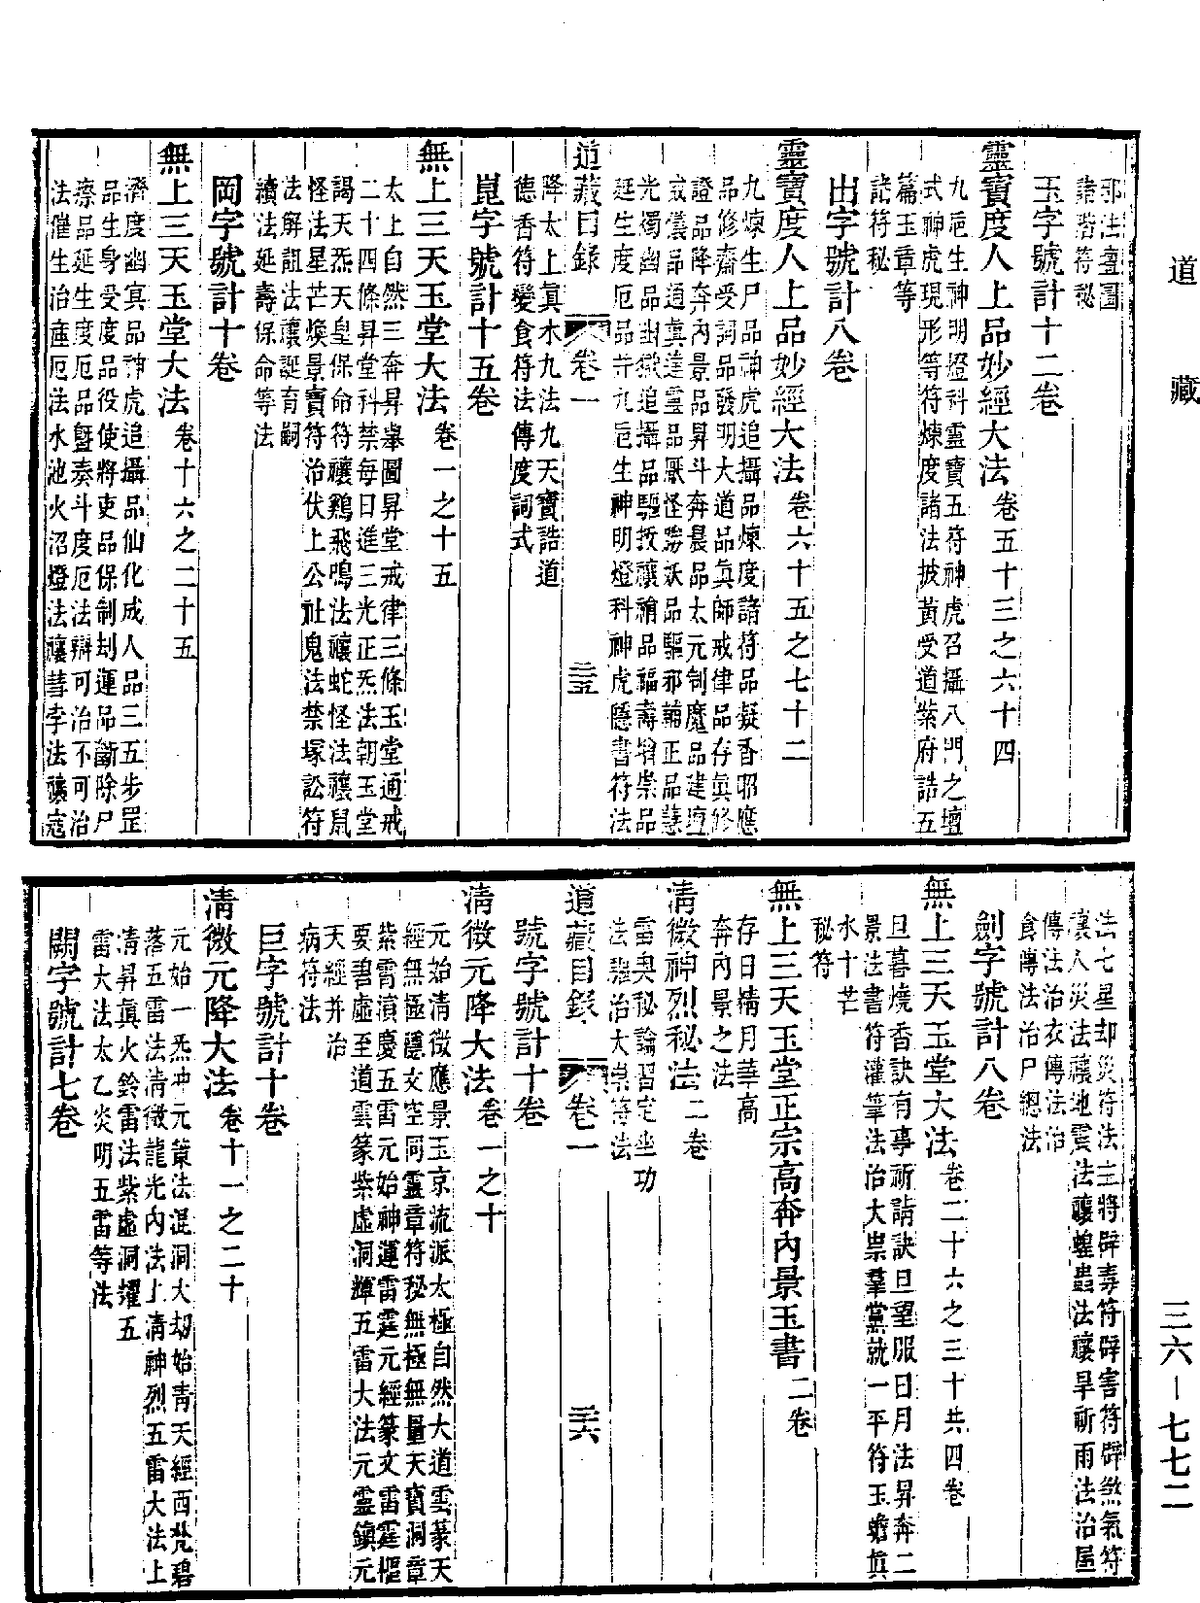 道藏
三六－七七二
邪法壇圖
諸階符秘
玉字號計十二卷
靈寶度人上品妙經大法 卷五十三之六十四
九巵生神明燈科靈寶五符神虎召攝八門之壇
式神虎現形等符煉度諸法披黃受道紫府誥五
篇玉章等
誥符秘
出字號計八卷
靈寶度人上品妙經大法 卷六十五之七十二
九煉生尸品神虎追攝品煉度諸符品凝香昭應
品修齋受詞品發明大道品眞師戒律品存眞修
證品降奔內景品昇斗奔晨品太元制魔品建壇
或儀品通眞達靈品厭怪勝妖品驅邪輔正品慧
光燭幽品幽獄追攝品驅疫禳禬品福壽增崇品
延生度厄品并九巵生神明燈科神虎隱書符法
道藏目錄 卷一 二十五
降太上眞水九法九天寶誥道
德香符變食符法傳度詞式
崑字號計十五卷
無上三天玉堂大法 卷一之十五
太上自然三奔昇舉圖昇堂戒律三條玉堂通戒
二十四條昇堂科禁每日進三光正炁法朝玉堂
謁天炁天皇保命符禳鷄飛鳴法禳蛇怪法禳鼠
怪法星芒煥景寶符治伏上公祉鬼法禁塚訟符
法解詛法禳誕育嗣
續法延壽保命等法
岡字號計十卷
無上三天玉堂大法 卷十六之二十五
濟度幽冥品神虎追攝品仙化成人品三五步罡
品生身受度品役使將吏品保制刦運品斷除尸
瘵品延生度厄品曁奏斗度厄法辯可治不可治
法催生治產厄法水池火沼燈法禳彗孛法禳寇
法七星却災符法主將辟毒符辟害符辟煞氣符
禳人災法禳地震法禳蝗蟲法禳旱祈雨法治屋
傳法治衣傳法治
食傳法治尸總法
劍字號計八卷
無上三天玉堂大法 卷二十六之三十共四卷
旦暮燒香訣有事祈請訣旦望服日月法昇奔二
景法書符灌筆法治大祟羣黨就一平符玉蟾眞
水十芒
秘符
無上三天玉堂正宗高奔內景玉書 二卷
存日精月華高
奔內景之法
淸微神烈秘法 二卷
雷奥秘論習定坐功
法驅治大祟符法
道藏目錄 卷一 二十六
號字號計十卷
淸微元降大法 卷一之十
元始淸微應景玉京流派太極自然大道雲篆天
經無極隱文空同靈章符秘無極無量天寶洞章
紫霄演慶五雷元始神運雷霆元經篆文雷霆樞
要碧虛至道雲篆紫虛洞輝五雷大法元靈鎮元
天經并治
病符法
巨字號計十卷
淸微元降大法 卷十一之二十
元始一炁冲元策法混洞大刼始青天經西梵碧
落五雷法淸微龍光內法上淸神烈五雷大法上
淸昇眞火鈴雷法紫虛洞耀五
雷大法太乙炎明五雷等法
闕字號計七卷